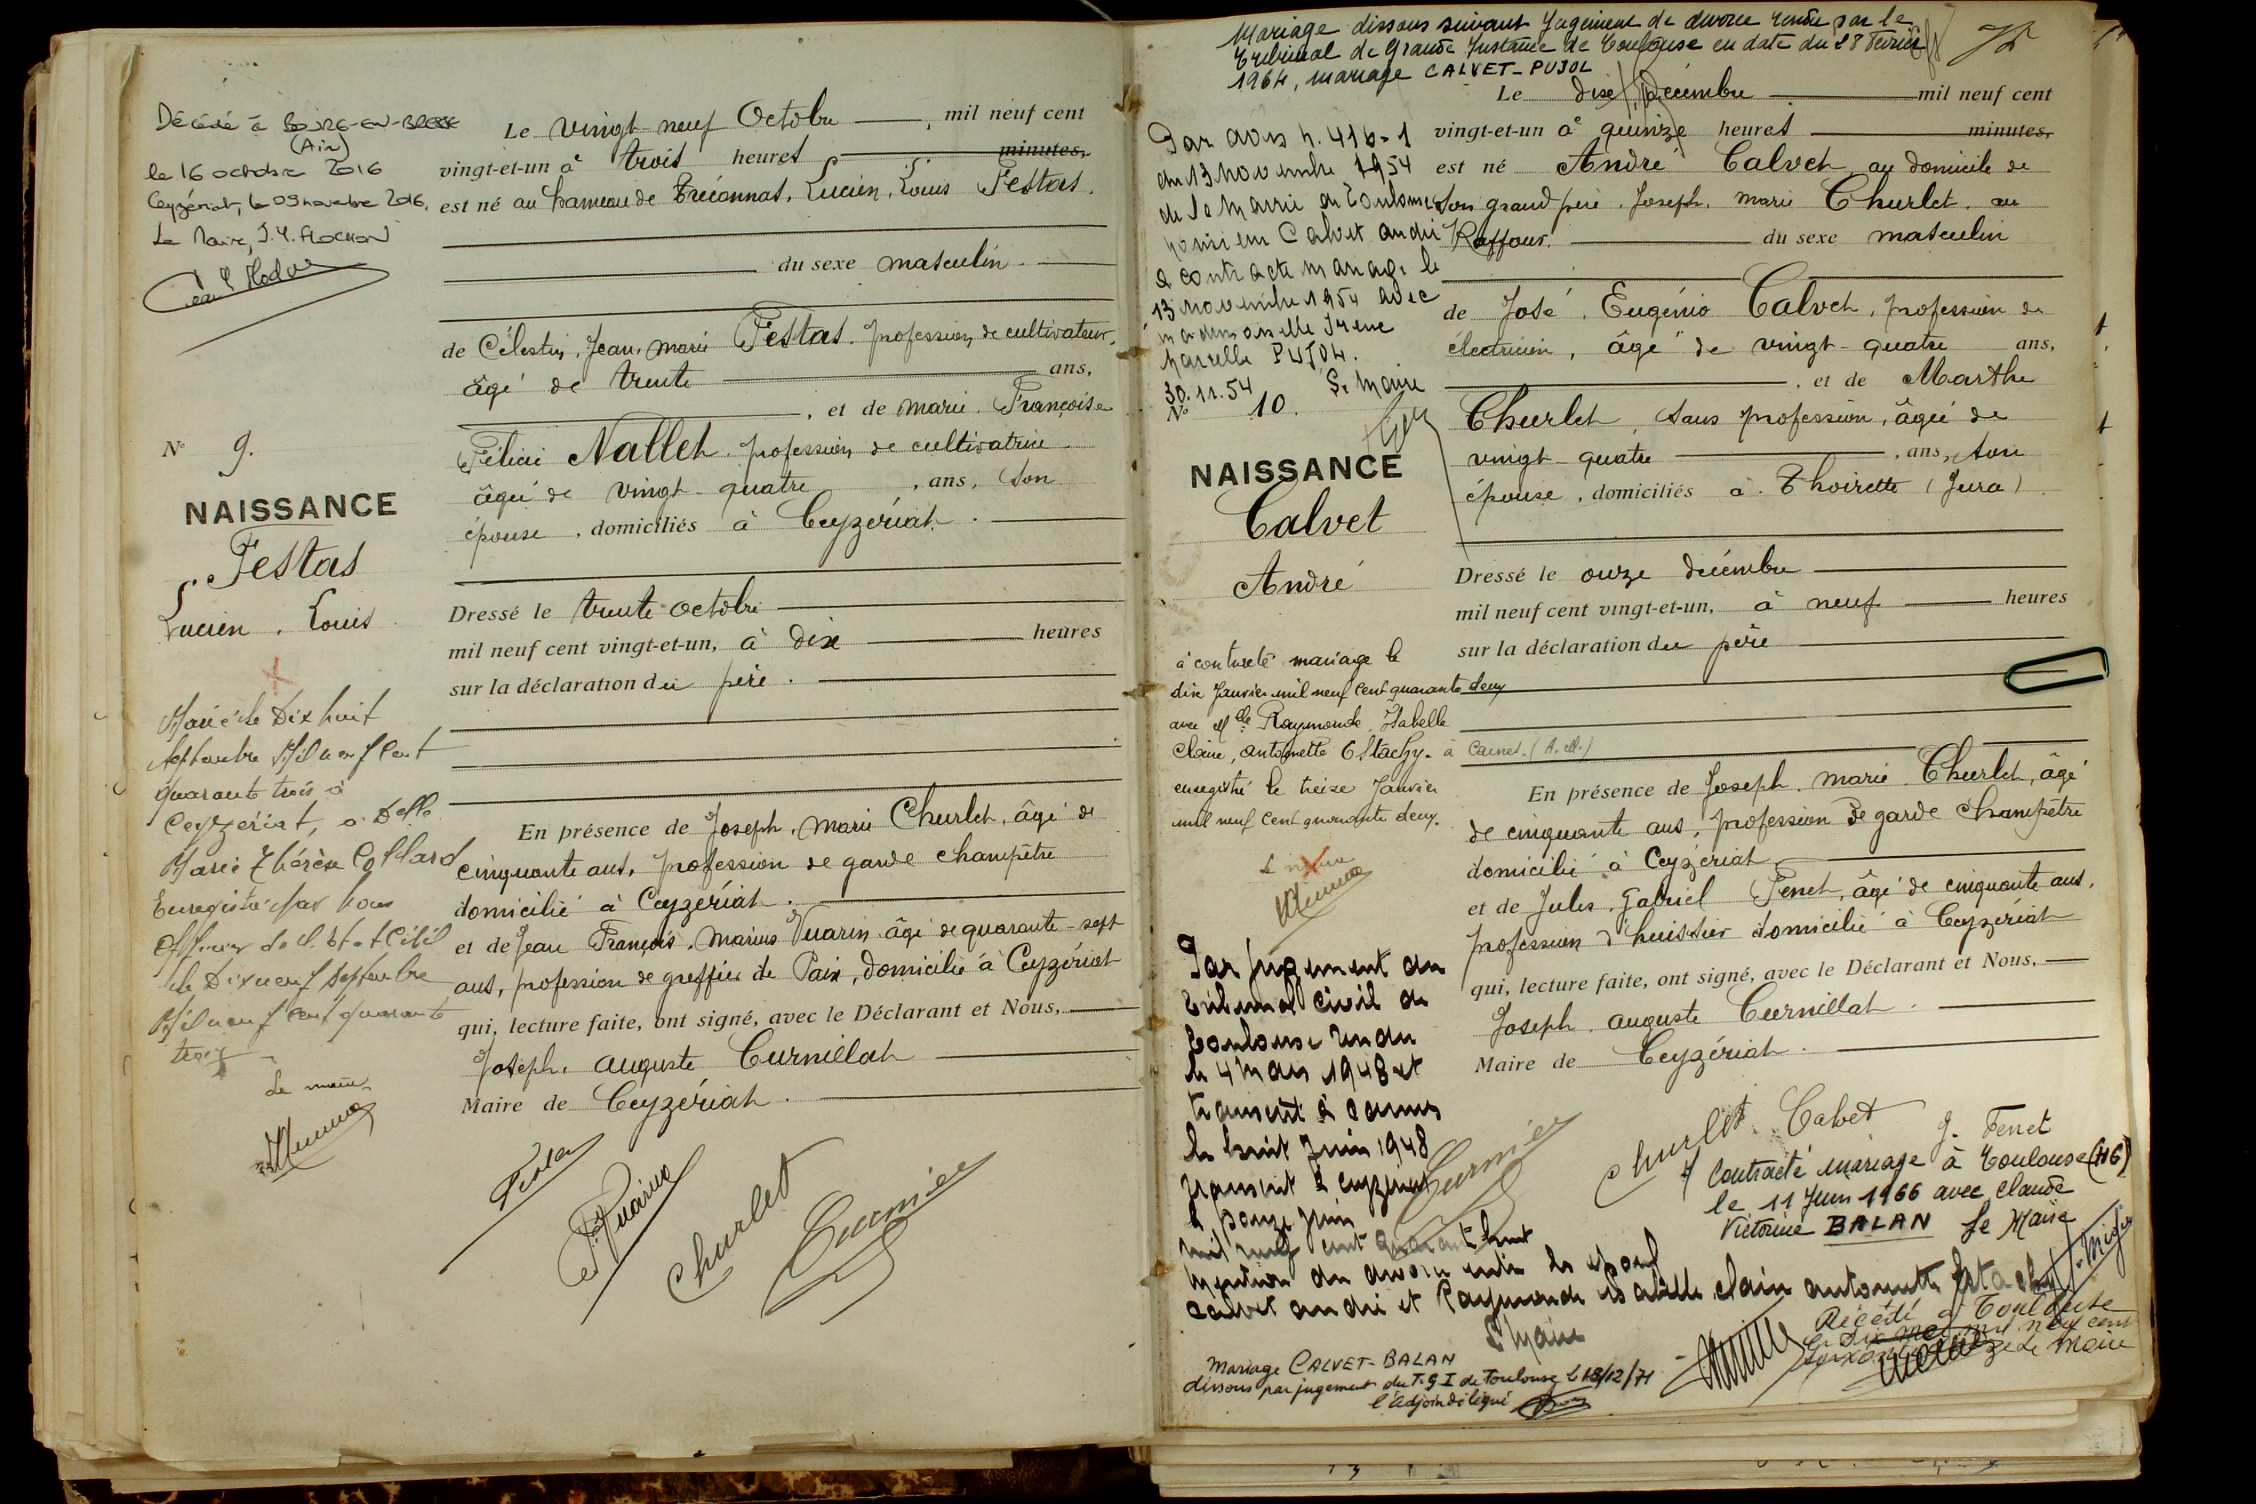 Décédé à BOURG-EN-BRESSE
(Ain)
le 16 octobre 2016
Ceyzériat, le 09 novembre 2016.
Le Maire, J.Y. FLOCHON
N° 9.
NAISSANCE
Festas
Lucien, Louis
Marié le Dix huit
septembre Mil neuf cent
quarante trois à
Ceyzériat, à Delle
Marie Thérèse Collard
Enregistré par nous
officier de l'Etat Civil
le Dix neuf septembre
Mil neuf cent quarante
trois
Le maire
Le vingt neuf Octobre, mil neuf cent
vingt-et-un à trois heures minutes,
est né au hameau de Tréconnas, Lucien, Louis Festas,
du sexe masculin
de Célestin, Jean, Marie Festas, profession de cultivateur,
âgé de trente ans,
, et de Marie, Françoise
Félicie Nallet, profession de cultivatrice
âgée de vingt-quatre, ans, son
épouse, domiciliés à Ceyzériat.
Dressé le trente octobre
mil neuf cent vingt-et-un, à dix heures
sur la déclaration du père.
En présence de Joseph, Marie Churlet, âgé de
cinquante ans, profession de garde champêtre
domicilié à Ceyzériat.
et de Jean François, Marius Vuarin âgé de quarante-sept
ans, profession de greffier de Paix, domicilié à Ceyzériat
qui, lecture faite, ont signé, avec le Déclarant et Nous,
Joseph, Auguste Curnillat
Maire de Ceyzériat.
Churlet
Mariage dissous suivant Jugement de divorce rendu par le
Tribunal de Grande Instance de Toulouse en date du 28 Février
1964, mariage CALVET-PUJOL
Par avis n. 416-1
du 13 novembre 1954
de la Mairie de Toulouse
monsieur Calvet André
a contracté mariage le
13 novembre 1954 avec
mademoiselle Irène
Marcelle PUJOL.
30.11.54 Le Maire
N° 10.
NAISSANCE
Calvet
André
à contracté mariage le
dix Janvier mil neuf cent quarante deux
avec Mlle Raymonde, Isabelle
Claire, Antoinette Estachy. à Cannes. (A.M.)
enregistré le treize Janvier
mil neuf cent quarante deux.
Par jugement du
Tribunal civil de
Toulouse rendu
le 4 Mars 1948 et
transcrit à Cannes
le huit Juin 1948
transcrit à Ceyzériat
le Juin
mil neuf cent quarante huit
Mention du divorce entre les époux
Calvet André et Raymonde Isabelle Claire Antoinette Estachy
Le Maire
Mariage CALVET-BALAN
dissous par jugement du T.G.I de Toulouse le 13/12/71
l'Adjoint délégué
Le dix décembre mil neuf cent
vingt-et-un à quinze heures minutes,
est né André Calvet au domicile de
son grand père, Joseph, Marie Churlet, au
Raffour. du sexe masculin
de José, Eugénio Calvet, profession de
électricien, âgé de vingt-quatre ans,
, et de Marthe
Churlet, sans profession, âgée de
vingt-quatre, ans, son
épouse, domiciliés à Thoirette (Jura)
Dressé le onze décembre
mil neuf cent vingt-et-un, à neuf heures
sur la déclaration du père
En présence de Joseph, Marie Churlet, âgé
de cinquante ans, profession de garde champêtre
domicilié à Ceyzériat
et de Jules, Gabriel Fenet, âgé de cinquante ans,
profession d'huissier domicilié à Ceyzériat
qui, lecture faite, ont signé, avec le Déclarant et Nous,
Joseph, Auguste Curnillat.
Maire de Ceyzériat.
Churlet Calvet J. Fenet
Contracté mariage à Toulouse (HG)
le 11 Juin 1966 avec Claude
Victorine BALAN Le Maire
Décédé à Toulouse
mil neuf cent
Le Maire